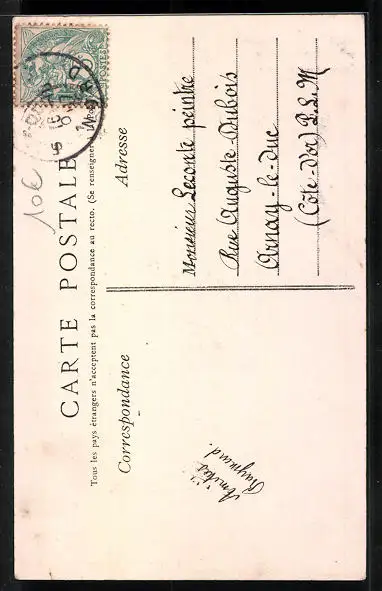 CARTE POSTALE
Tous les pays étrangers n'acceptent pas la correspondance au recto. (Se renseigner
Correspondance
Adresse
Amitiés
Raymond.
Monsieur Leconte peintre
Rue Auguste Dubois
Arnay-le-duc
(Côte-d'or) P.L.M
10€